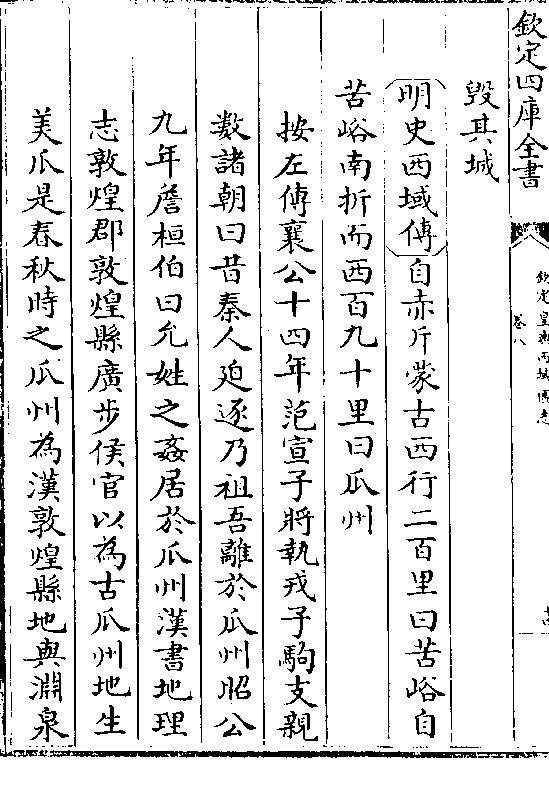 欽定四庫全書
欽定皇輿西域圖志
卷八
毀其城
明史西域傳自赤斤蒙古西行二百里曰苦峪自
苦峪南折而西百九十里曰瓜州
按左傳襄公十四年范宣子將執戎子駒支親
數諸朝曰昔秦人廹逐乃祖吾離於瓜州昭公
九年詹桓伯曰允姓之姦居於瓜州漢書地理
志敦煌郡敦煌縣廣步侯官以為古瓜州地生
美瓜是春秋時之瓜州為漢敦煌縣地與淵泉